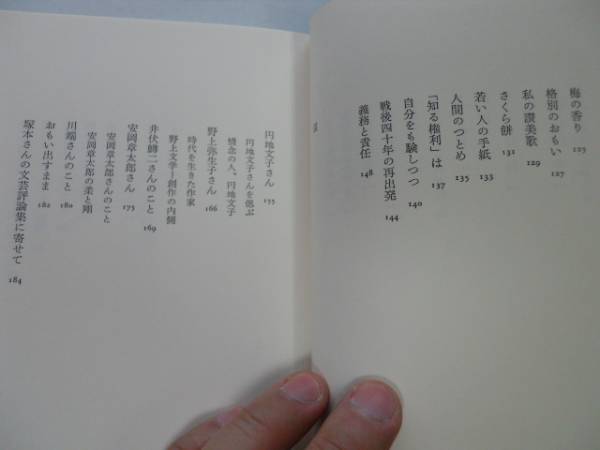 梅の香り 123
格別のおもい 127
私の讃美歌 129
さくら餅 131
若い人の手紙 133
人間のつとめ 135
「知る権利」は 137
自分をも験しつつ 140
戦後四十年の再出発 144
義務と責任 148
円地文子さん 155
円地文子さんを偲ぶ
情念の人、円地文子
野上弥生子さん 166
時代を生きた作家
野上文学―創作の内側
井伏鱒二さんのこと 169
安岡章太郎さん 175
安岡章太郎さんのこと
安岡章太郎の柔と剛
川端さんのこと 180
おもい出すまま 182
塚本さんの文芸評論集に寄せて 184